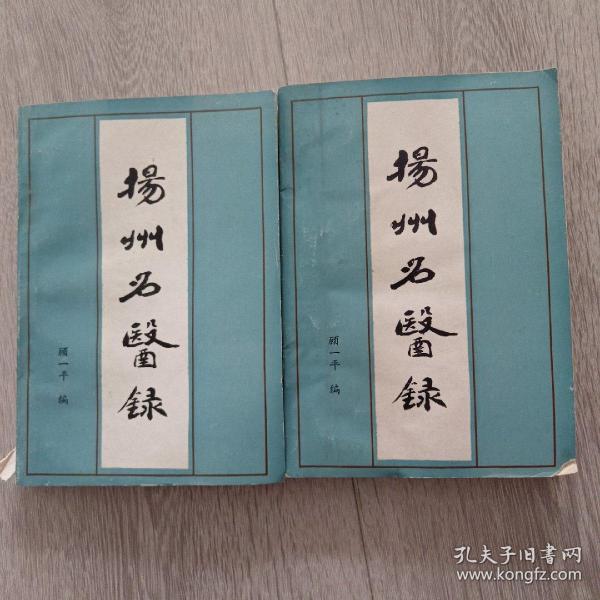 揚州名醫録
顾一平 编
揚州名醫録
顾一平 编
孔夫子旧书网
www.kongfz.com